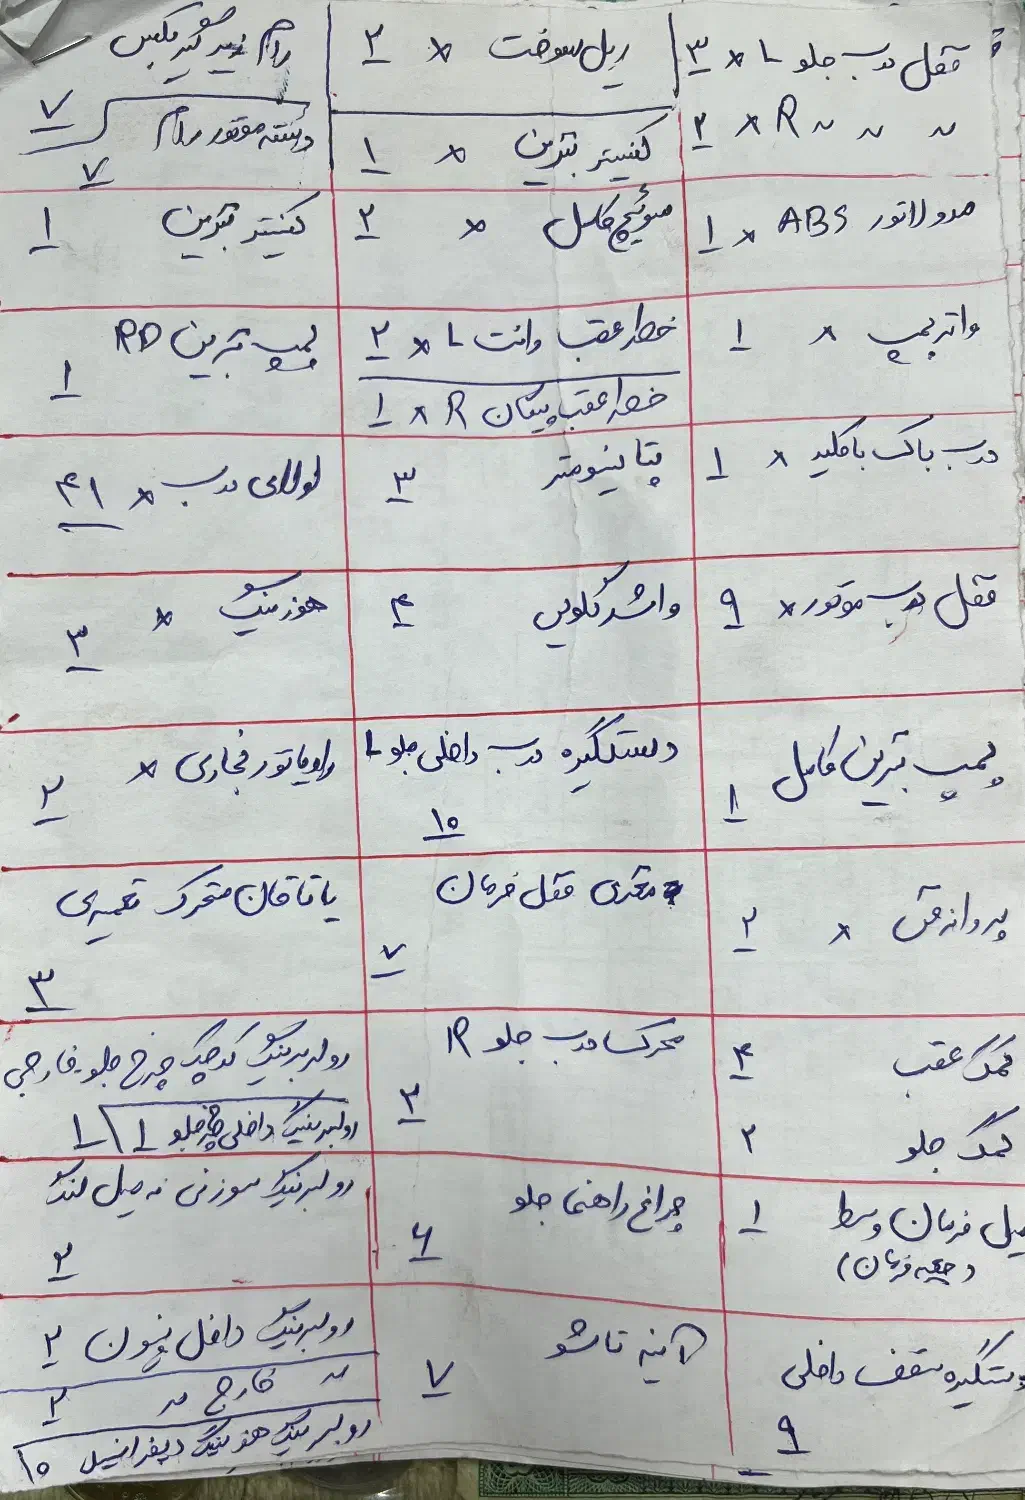 قفل درب جلو L × ۳
〃 〃 〃 R × ۲
ریل سوخت × ۲
کنیستر بنزین × ۱
رام زیر گیربکس
۷
دسته موتور رام
۷
مدولاتور ABS × ۱
سوئیچ کامل × ۲
کنیستر بنزین ۱
واتر پمپ × ۱
خطر عقب وانت L × ۲
خطر عقب پیکان R × ۱
پمپ بنزین RD
۱
درب باک با کلید × ۱
پتانیومتر ۳
لولای درب × ۴۱
قفل درب موتور × ۹
واشر گلویی ۴
هوزینگ × ۳
پمپ بنزین کامل
۱
دستگیره درب داخلی جلو L
۱۰
رادیاتور بخاری × ۲
پروانه فن × ۲
مغزی قفل فرمان
۷
یاتاقان متحرک تعمیری
۳
کمک عقب ۴
کمک جلو ۲
محرک درب جلو R
۳
رولبرینگ کوچک چرخ جلو خارجی
۱
رولبرینگ داخلی چرخ جلو ۱
میل فرمان وسط ۱
(جعبه فرمان)
چراغ راهنما جلو
۶
رولبرینگ سوزنی میل لنگ
۳
دستگیره سقف داخلی
۹
آینه تاشو
۷
رولبرینگ داخل پنیون ۲
〃 خارج 〃 ۲
رولبرینگ هوزینگ دیفرانسیل ۱۰